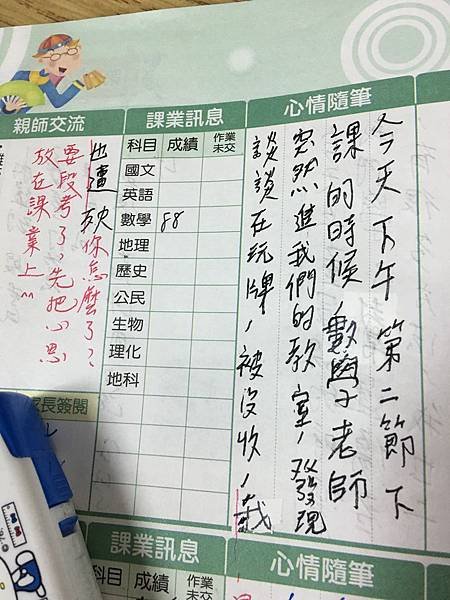 心情隨筆
今天下午第二節下
課的時候，數學老師
突然進我們的教室，發現
談談在玩牌，被沒收，我
課業訊息
科目 成績 作業未交
國文
英語
數學 88
地理
歷史
公民
生物
理化
地科
親師交流
也遭殃
你怎麼了？
要段考了，先把心思
放在課業上~
家長簽閱
課業訊息
心情隨筆
科目 成績 作業未交